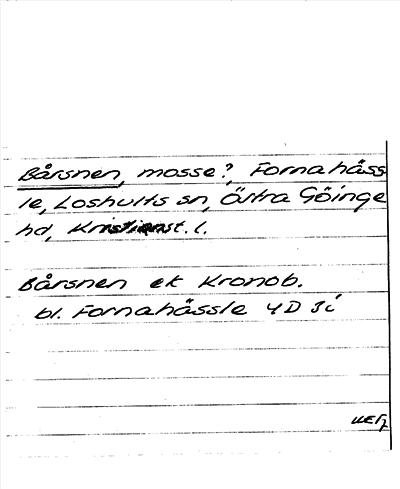 Bårsnen, mosse?, Fornahäss
le, Loshults sn, Östra Göinge
hd, Kristianst. l.
Bårsnen ek Kronob.
bl. Fornahässle 4D 3i